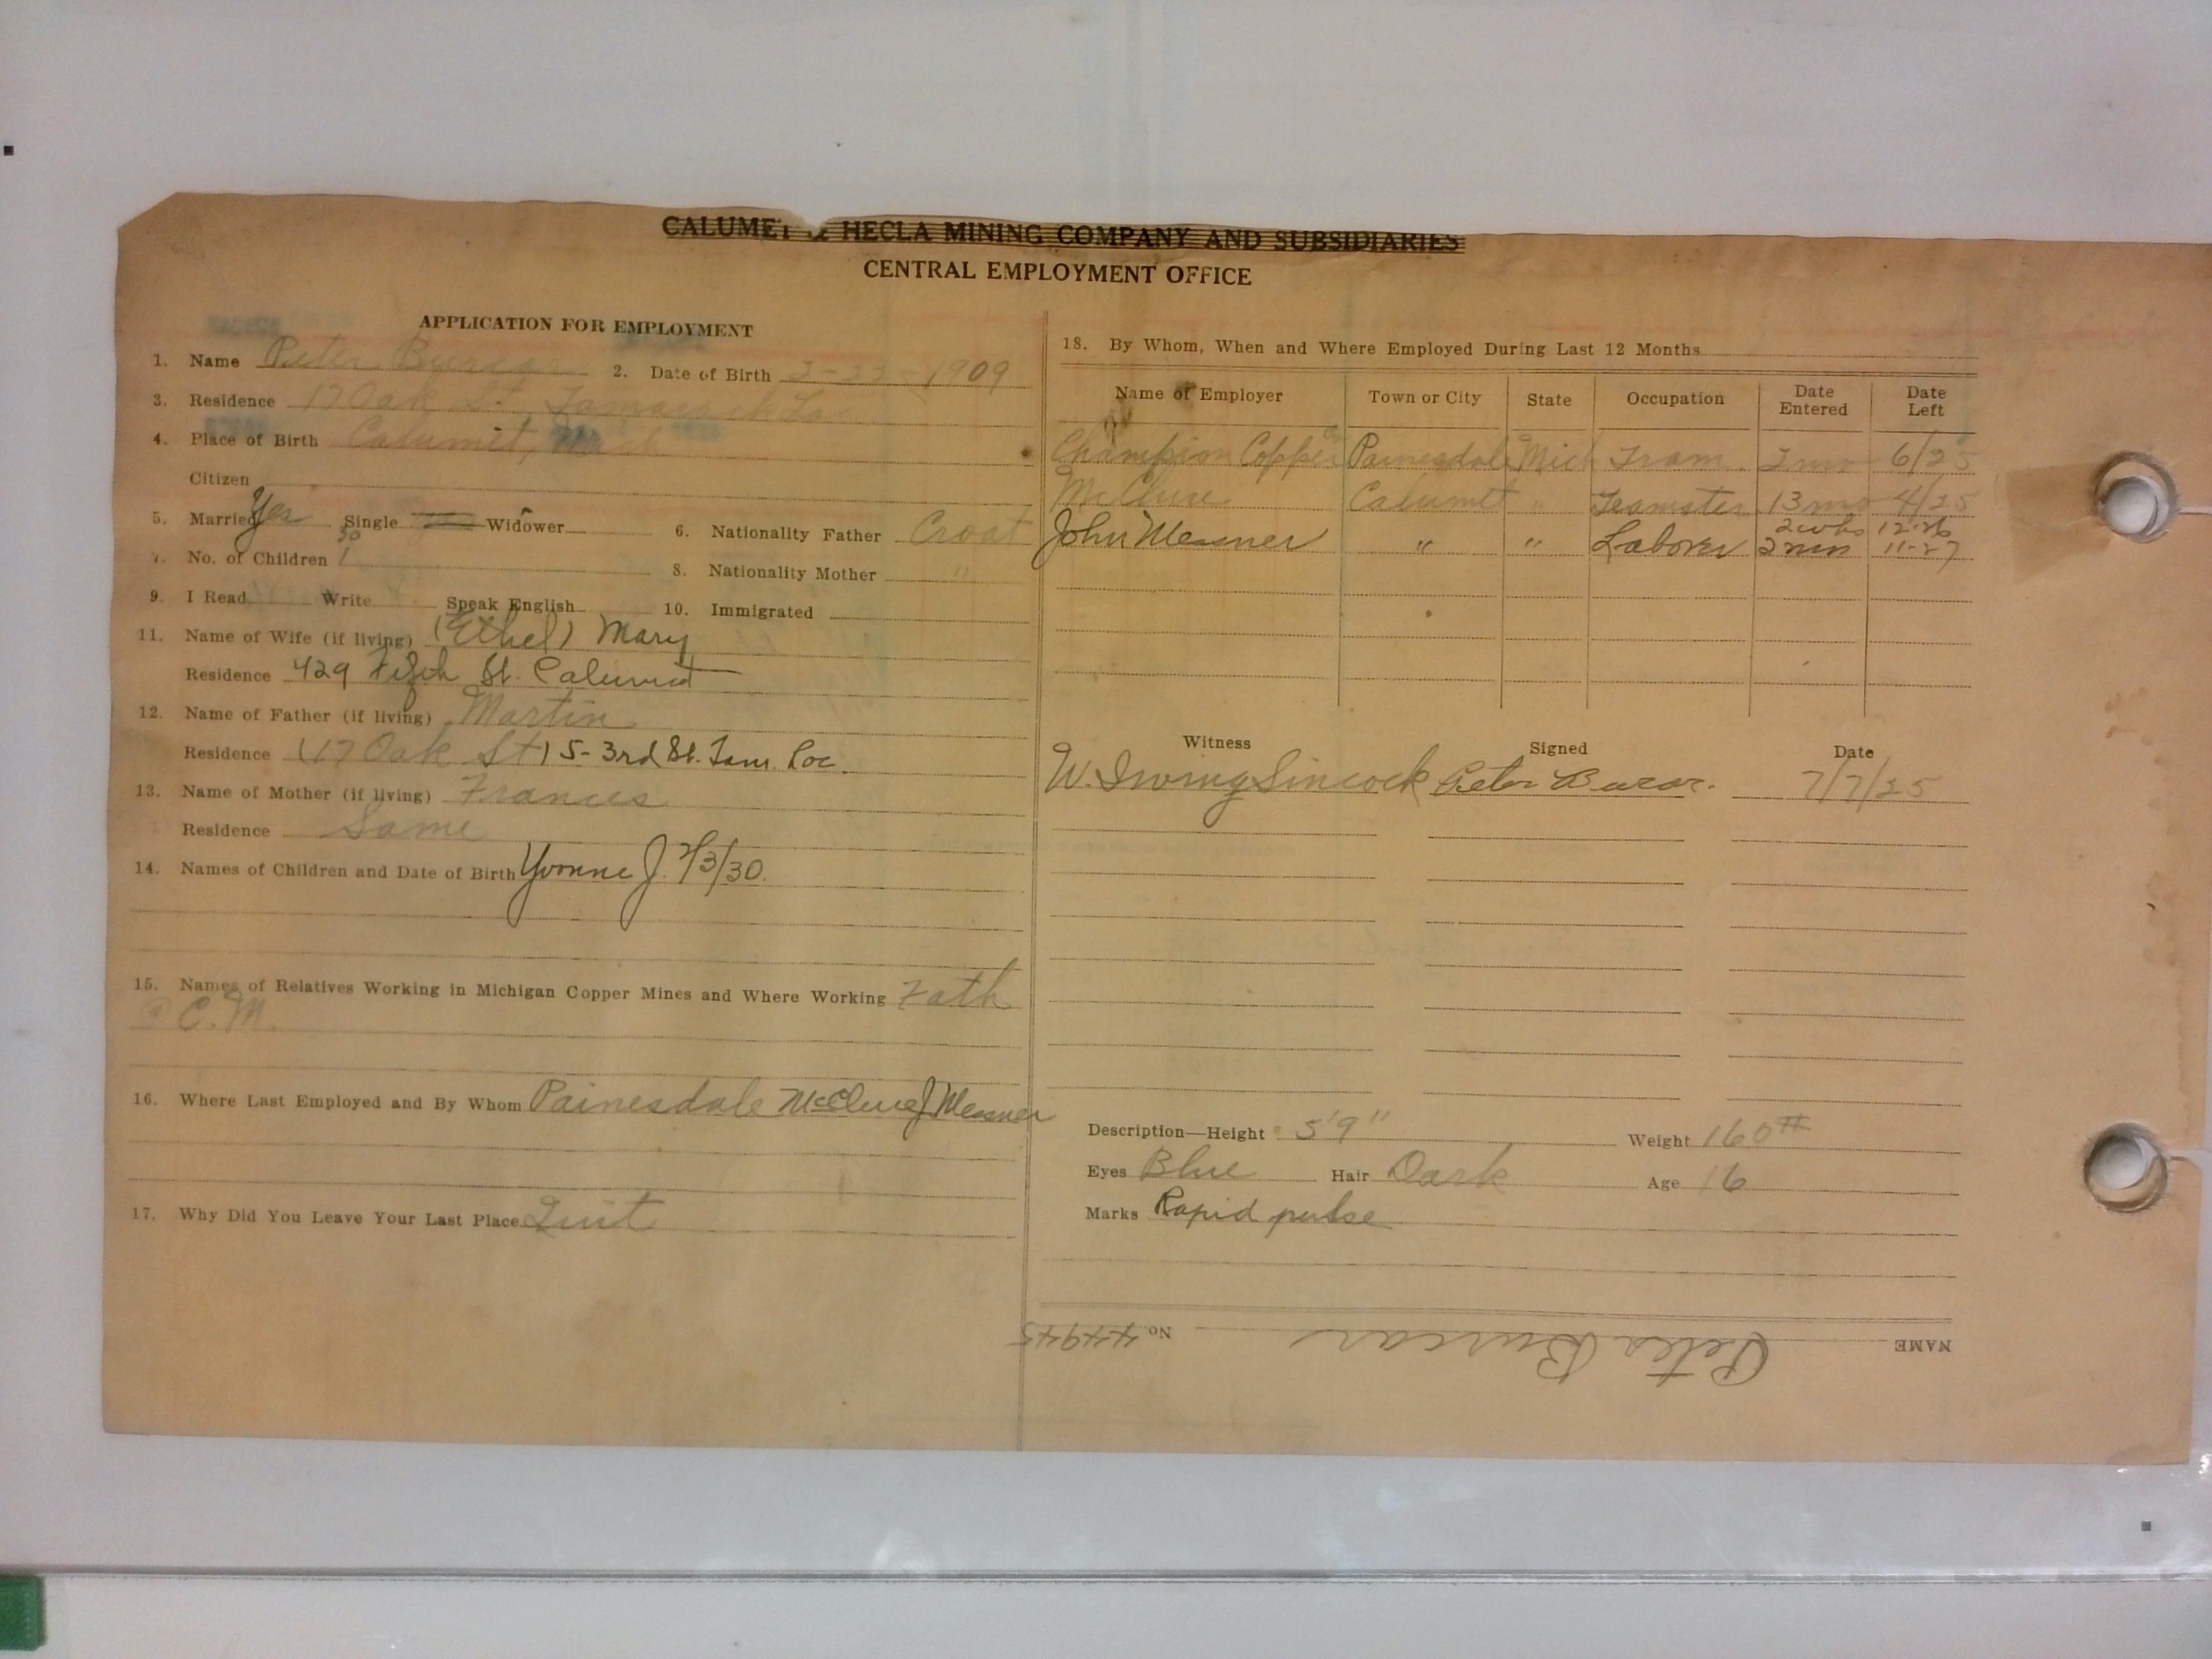 CALUMET & HECLA MINING COMPANY AND SUBSIDIARIES
CENTRAL EMPLOYMENT OFFICE
APPLICATION FOR EMPLOYMENT
1. Name Peter Burcar 2. Date of Birth 3-23-1909
3. Residence 17 Oak St, Tamarack Lo
4. Place of Birth Calumet, Mich
Citizen
5. Married Yes Single Widower 6. Nationality Father Croat
30
7. No. of Children 1 8. Nationality Mother "
9. I Read Write Speak English 10. Immigrated
11. Name of Wife (if living) (Ethel) Mary
Residence 429 Fifth St. Calumet
12. Name of Father (if living) Martin
Residence (17 Oak St) 5-3rd St. Tam. Loc.
13. Name of Mother (if living) Frances
Residence Same
14. Names of Children and Date of Birth Yvonne J. 2/3/30.
15. Names of Relatives Working in Michigan Copper Mines and Where Working Fath
@ C.M.
16. Where Last Employed and By Whom Painesdale McClure J. Messner
17. Why Did You Leave Your Last Place Quit
18. By Whom, When and Where Employed During Last 12 Months
Name of Employer Town or City State Occupation Date Entered Date Left
Champion Copper Co Painesdale Mich Tram 2 mo 6/25
McClure Calumet " Teamster 13 mo 4/25
2 wks 12-26
John Messner " " Laborer 2 mon 11-27
Witness Signed Date
W. Irving Sincock Peter Burcar. 7/7/25
Description—Height 5'9" Weight 160#
Eyes Blue Hair Dark Age 16
Marks Rapid pulse
NAME Peter Burcar No. 44945